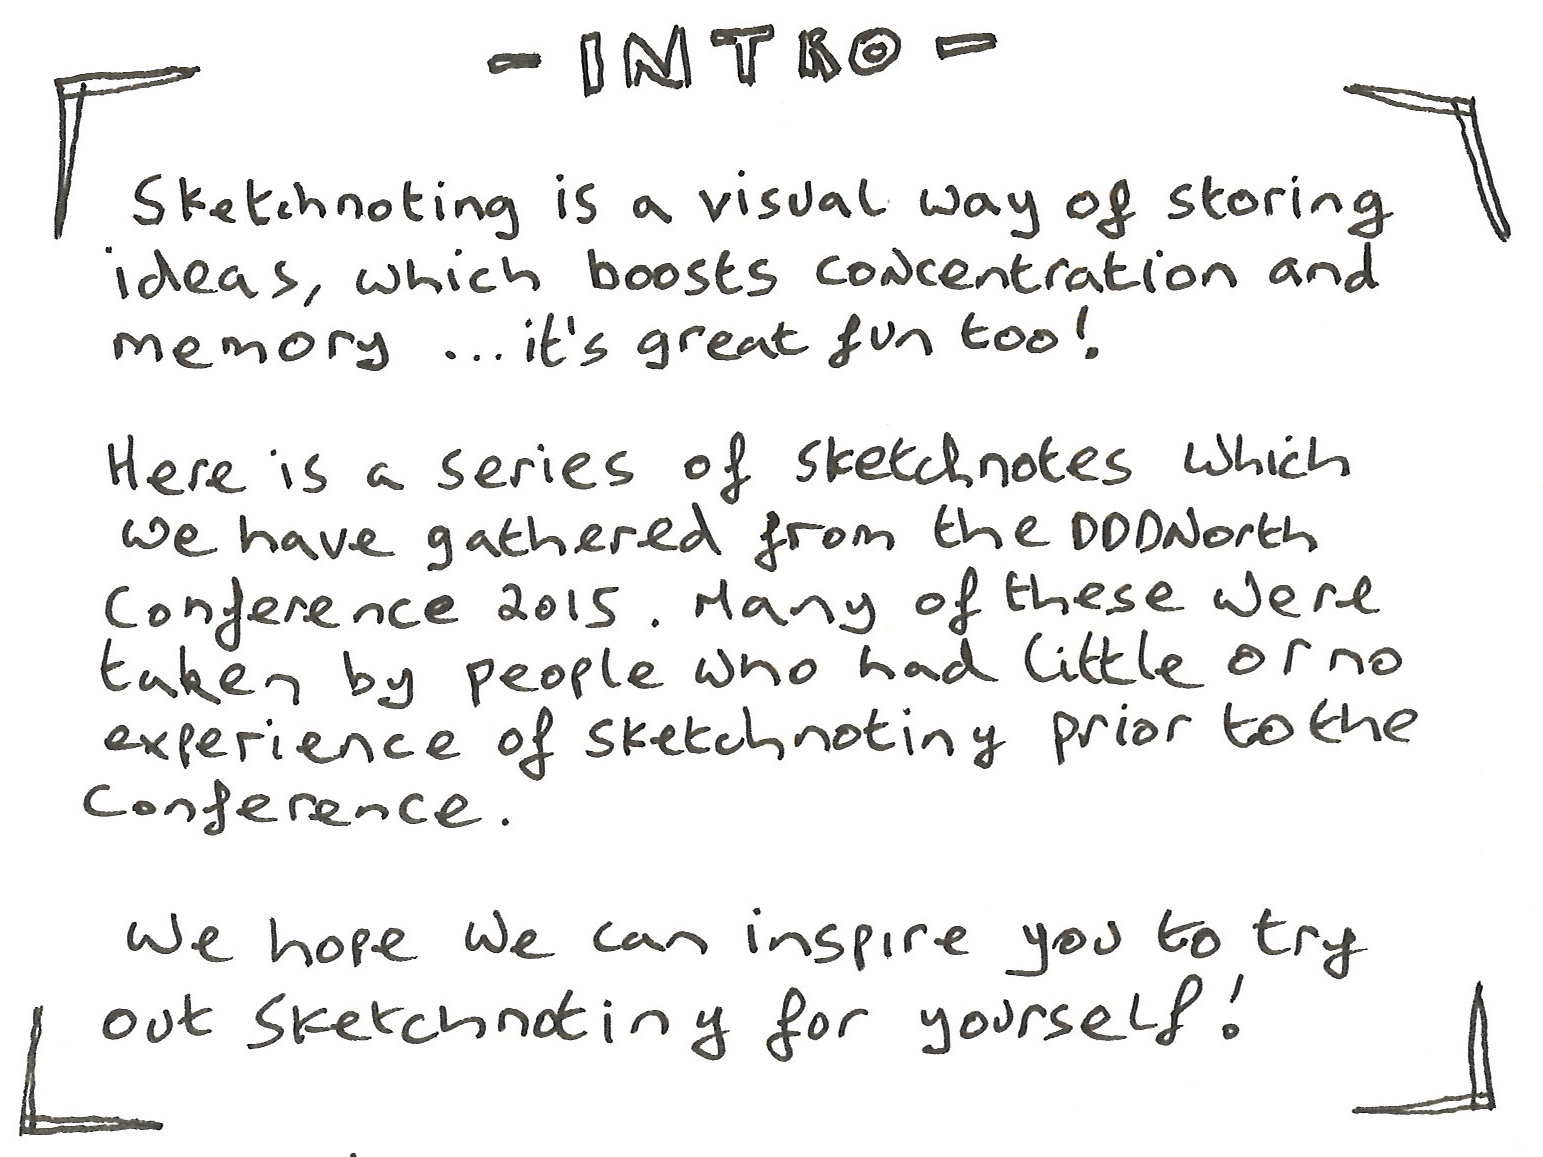 - INTRO -
Sketchnoting is a visual way of storing
ideas, which boosts concentration and
memory ... it's great fun too!
Here is a series of sketchnotes which
we have gathered from the DDDNorth
Conference 2015. Many of these were
taken by people who had little or no
experience of sketchnoting prior to the
Conference.
We hope we can inspire you to try
out Sketchnoting for yourself!